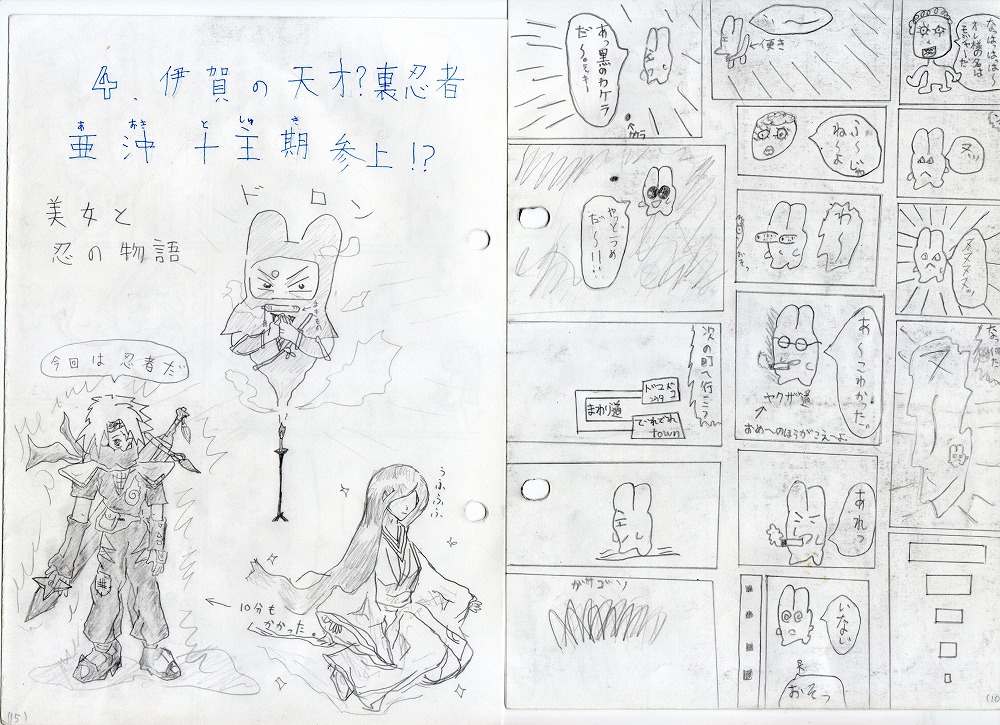 4、伊賀の天才?裏忍者
亜沖 十主期 参上!?
あ おき と しゅ き
美女と
忍の物語
ドロン
今回は忍者だ
うふふふ
←10分も
かかった。
(15)
なっはっはっは〜
オレ様の名は
ヌッ
ヌヌヌヌッ
←驚き
ふ〜じゃ
ね〜よ
わ〜
あ〜こわかった。
ヤクザ道
おめ〜のほうがこえ〜よ
あれっ
いない
おそっ
あっ黒のカケラ
だ〜。
やっとうめ
だ〜!!!
次の町へ行こう
まわり道
でれでれ
town
ガサゴソ